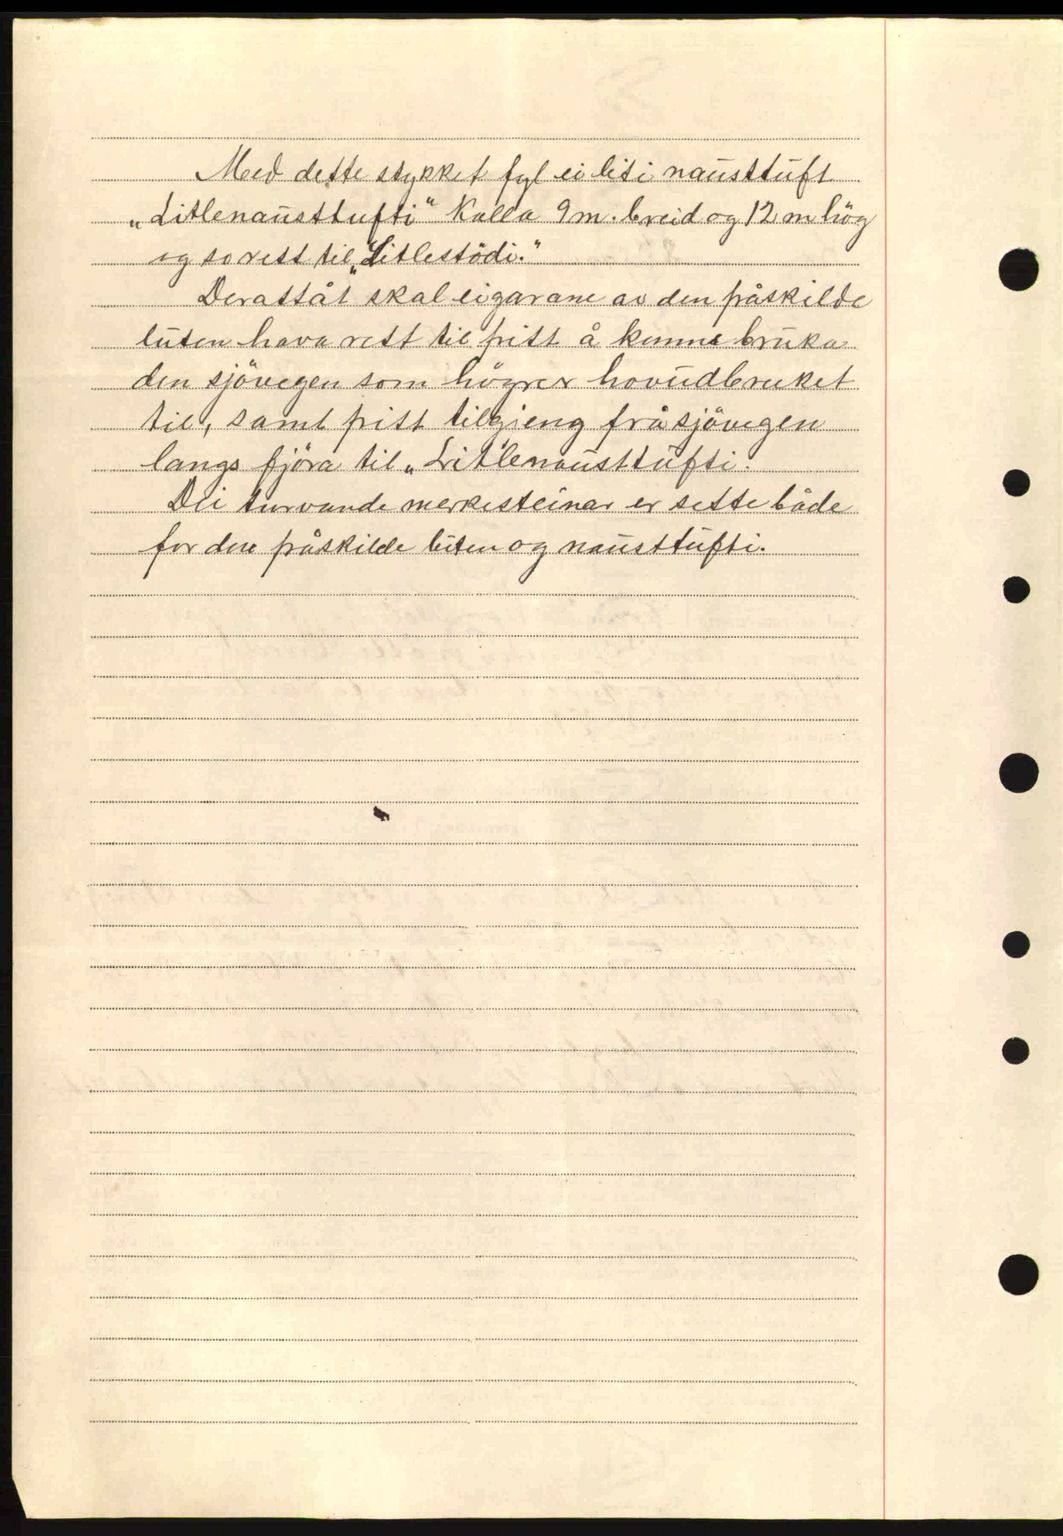 Med dette stykket fyl ei liti nausttuft
„Litlenausttufti“ kalla 9 m. breid og 12 m hög
og so rett til „Litlestödi.“
Derattåt skal eigarane av den fråskilde
luten hava rett til fritt å kunne bruka
den sjövegen som höyrer hovudbruket
til, samt fritt tilgjeng frå sjövegen
langs fjöra til „Litlenausttufti.
Dei turvande merkesteinar er sette både
for den fråskilde luten og nausttufti.